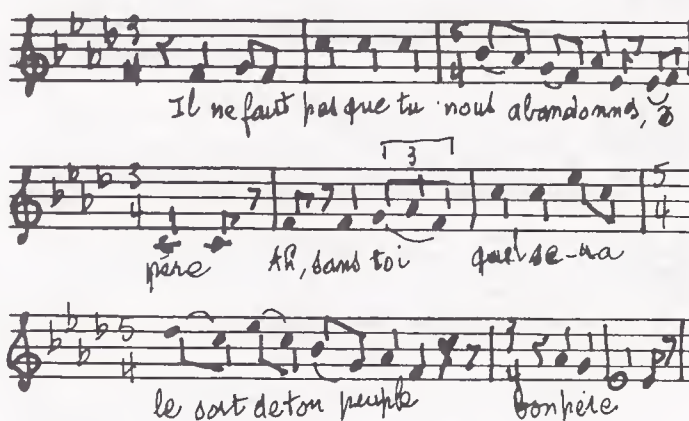 Il ne faut pas que tu nous abandonnes, ô
3
père Ah, sans toi quel se-ra
le sort de ton peuple bon père